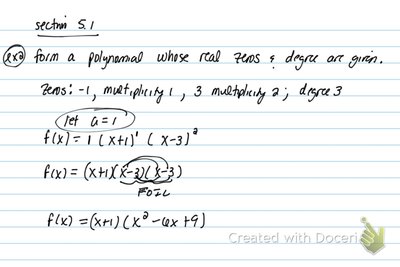 section 5.1
ex2 Form a polynomial whose real zeros & degree are given.
Zeros: -1, multiplicity 1, 3 multiplicity 2; degree 3
let a=1
f(x)= 1 (x+1)¹ (x-3)²
f(x)= (x+1)(x-3)(x-3)
FOIL
f(x)=(x+1)(x²-6x+9)
Created with Doceri